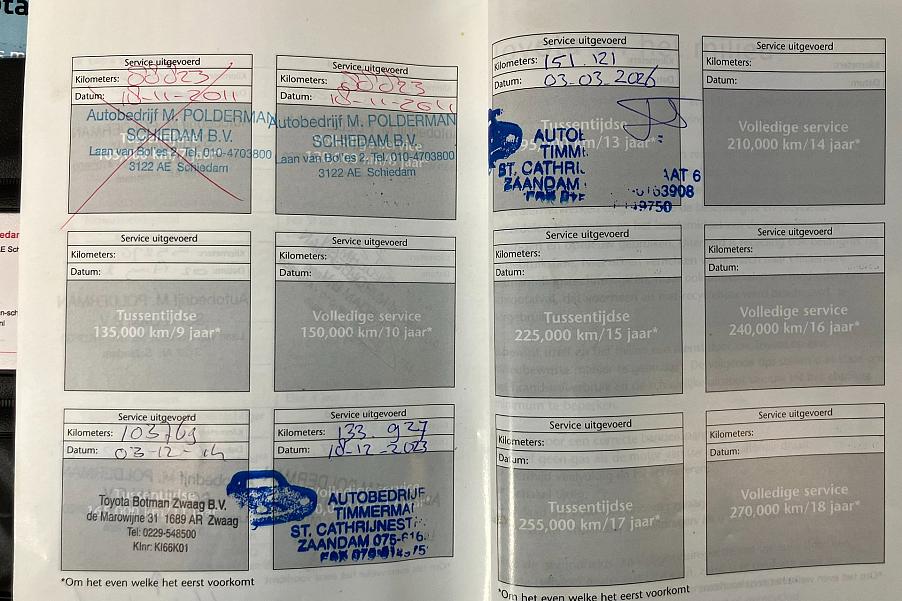 Service uitgevoerd
Kilometers: 88823
Datum: 18-11-2011
Autobedrijf M. POLDERMAN
SCHIEDAM B.V.
Laan van Bol'es 2, Tel. 010-4703800
3122 AE Schiedam
Service uitgevoerd
Kilometers: 88823
Datum: 18-11-2011
Autobedrijf M. POLDERMAN
SCHIEDAM B.V.
Laan van Bol'es 2, Tel. 010-4703800
3122 AE Schiedam
Service uitgevoerd
Kilometers:
Datum:
Tussentijdse
135,000 km/9 jaar*
Service uitgevoerd
Kilometers:
Datum:
Volledige service
150,000 km/10 jaar*
Service uitgevoerd
Kilometers:
Datum: 03-12-14
Toyota Botman Zwaag B.V.
de Marowijne 31 1689 AR Zwaag
Tel: 0229-548500
Klnr: KI66K01
Service uitgevoerd
Kilometers: 133.927
Datum: 18-12-2023
AUTOBEDRIJF
TIMMERMA
ST. CATHRIJNEST
ZAANDAM 075-616
*Om het even welke het eerst voorkomt
Service uitgevoerd
Kilometers: 151.121
Datum: 03-03-2026
Tussentijdse
/13 jaar*
AUTOB
TIMM
ST. CATHRIJ
ZAANDAM
AAT 6
63908
49750
Service uitgevoerd
Kilometers:
Datum:
Volledige service
210,000 km/14 jaar*
Service uitgevoerd
Kilometers:
Datum:
Tussentijdse
225,000 km/15 jaar*
Service uitgevoerd
Kilometers:
Datum:
Volledige service
240,000 km/16 jaar*
Service uitgevoerd
Kilometers:
Datum:
Tussentijdse
255,000 km/17 jaar*
Service uitgevoerd
Kilometers:
Datum:
Volledige service
270,000 km/18 jaar*
*Om het even welke het eerst voorkomt